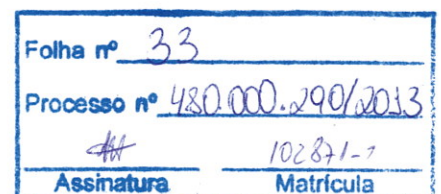 Folha nº 33
Processo nº 480.000.290/2013
102871-7
Assinatura Matrícula